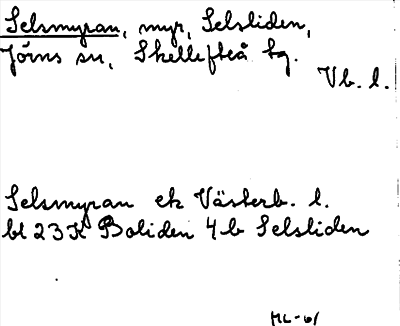 Selsmyran, myr, Selsliden,
Jörns sn, Skellefteå tg.
Vb. l.
Selsmyran ek Västerb. l.
bl 23K Boliden 4b Selsliden
ML-61